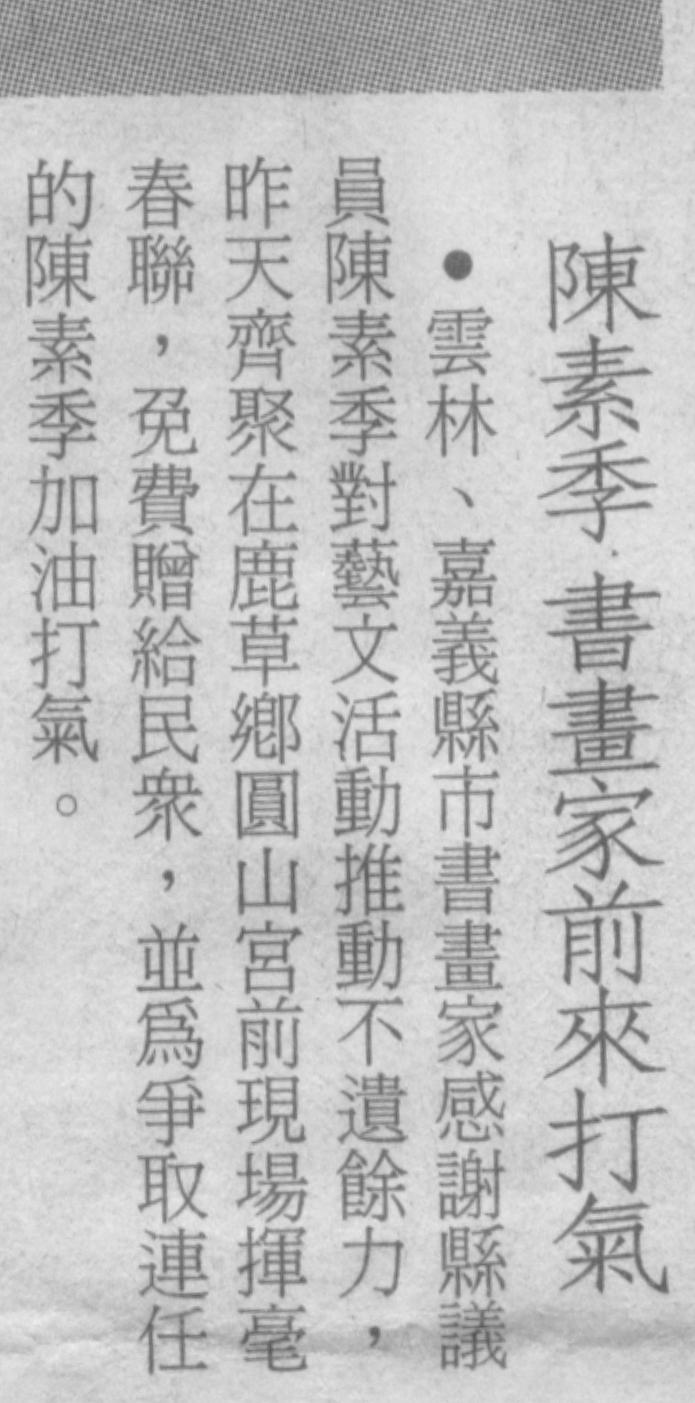 陳素季 書畫家前來打氣
●雲林、嘉義縣市書畫家感謝縣議
員陳素季對藝文活動推動不遺餘力，
昨天齊聚在鹿草鄉圓山宮前現場揮毫
春聯，免費贈給民眾，並爲爭取連任
的陳素季加油打氣。